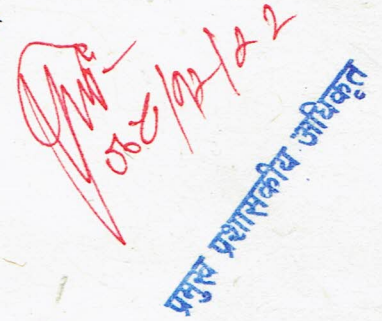 ०७८/१२/२२
प्रमुख प्रशासकीय अधिकृत